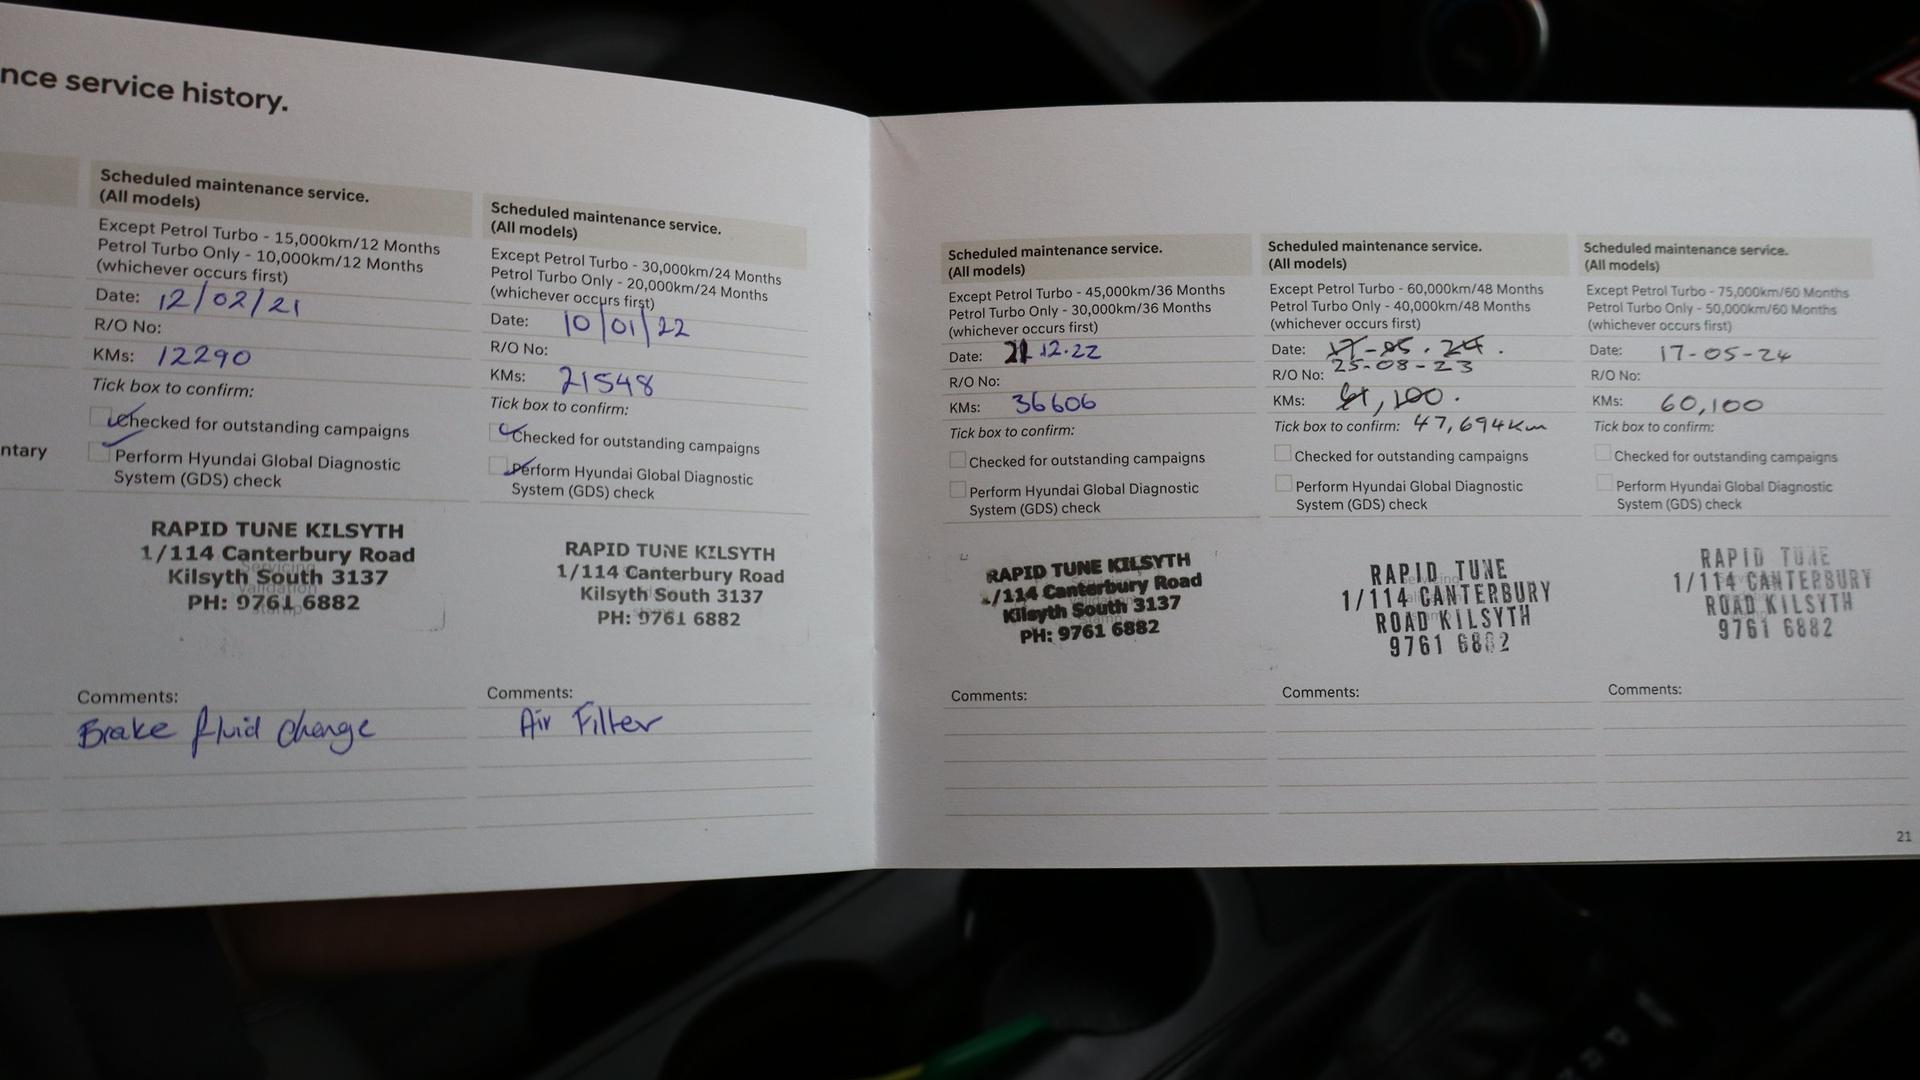 nce service history.
ntary
Scheduled maintenance service.
(All models)
Except Petrol Turbo - 15,000km/12 Months
Petrol Turbo Only - 10,000km/12 Months
(whichever occurs first)
Date: 12/02/21
R/O No:
KMs: 12290
Tick box to confirm:
Checked for outstanding campaigns
Perform Hyundai Global Diagnostic
System (GDS) check
RAPID TUNE KILSYTH
1/114 Canterbury Road
Kilsyth South 3137
PH: 9761 6882
Comments:
Brake fluid change
Scheduled maintenance service.
(All models)
Except Petrol Turbo - 30,000km/24 Months
Petrol Turbo Only - 20,000km/24 Months
(whichever occurs first)
Date: 10/01/22
R/O No:
KMs: 21548
Tick box to confirm:
Checked for outstanding campaigns
Perform Hyundai Global Diagnostic
System (GDS) check
RAPID TUNE KILSYTH
1/114 Canterbury Road
Kilsyth South 3137
PH: 9761 6882
Comments:
Air Filter
Scheduled maintenance service.
(All models)
Except Petrol Turbo - 45,000km/36 Months
Petrol Turbo Only - 30,000km/36 Months
(whichever occurs first)
Date: 21.12.22
R/O No:
KMs: 36606
Tick box to confirm:
Checked for outstanding campaigns
Perform Hyundai Global Diagnostic
System (GDS) check
RAPID TUNE KILSYTH
1/114 Canterbury Road
Kilsyth South 3137
PH: 9761 6882
Comments:
Scheduled maintenance service.
(All models)
Except Petrol Turbo - 60,000km/48 Months
Petrol Turbo Only - 40,000km/48 Months
(whichever occurs first)
Date: 17-05.24.
25-08-23
R/O No:
KMs:
Tick box to confirm: 47,694Km
Checked for outstanding campaigns
Perform Hyundai Global Diagnostic
System (GDS) check
RAPID TUNE
1/114 CANTERBURY
ROAD KILSYTH
9761 6882
Comments:
Scheduled maintenance service.
(All models)
Except Petrol Turbo - 75,000km/60 Months
Petrol Turbo Only - 50,000km/60 Months
(whichever occurs first)
Date: 17-05-24
R/O No:
KMs: 60,100
Tick box to confirm:
Checked for outstanding campaigns
Perform Hyundai Global Diagnostic
System (GDS) check
RAPID TUNE
1/114 CANTERBURY
ROAD KILSYTH
9761 6882
Comments:
21